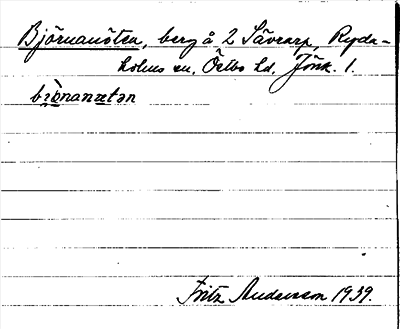 Björnanöten, berg å 2 Sävrarp, Ryda-
holms sn, Östbo hd, Jönk. l.
bjönanøtən
Fritz Andersson 1939.